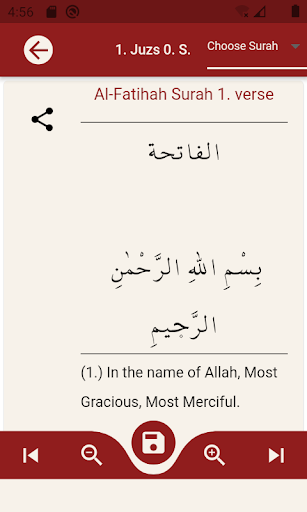 4:56
1. Juzs 0. S.
Choose Surah
Al-Fatihah Surah 1. verse
الفاتحة
بِسْمِ اللهِ الرَّحْمٰنِ
الرَّجٖيمِ
(1.) In the name of Allah, Most
Gracious, Most Merciful.